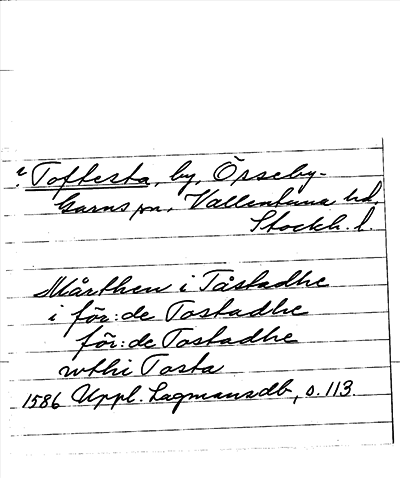 ? Toftesta, by, Össeby-
Garns sn, Vallentuna hd,
Stockh. l.
Mårthen i Tåstadhe
i för:de Tostadhe
för:de Tostadhe
wthi Tosta
1586 Uppl. Lagmansdb, s. 113.